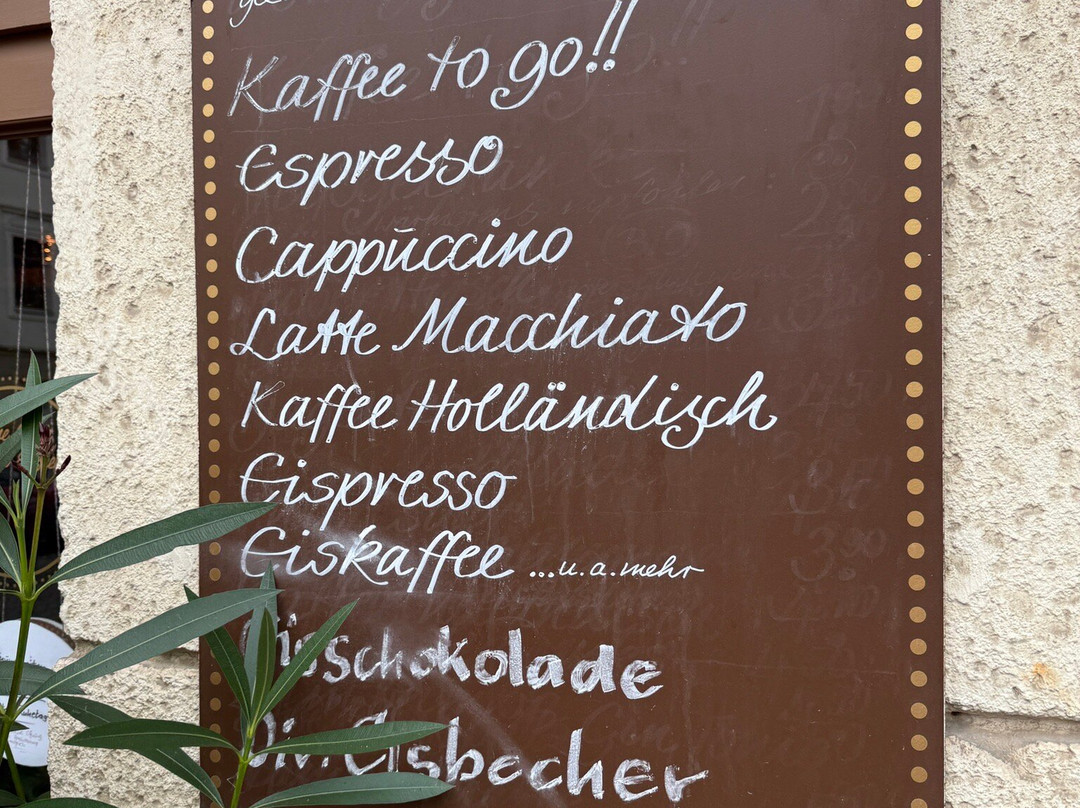 Kaffee to go!!
Espresso
Cappuccino
Latte Macchiato
Kaffee Holländisch
Eispresso
Eiskaffee ...u.a.mehr
Eisschokolade
Div. Eisbecher